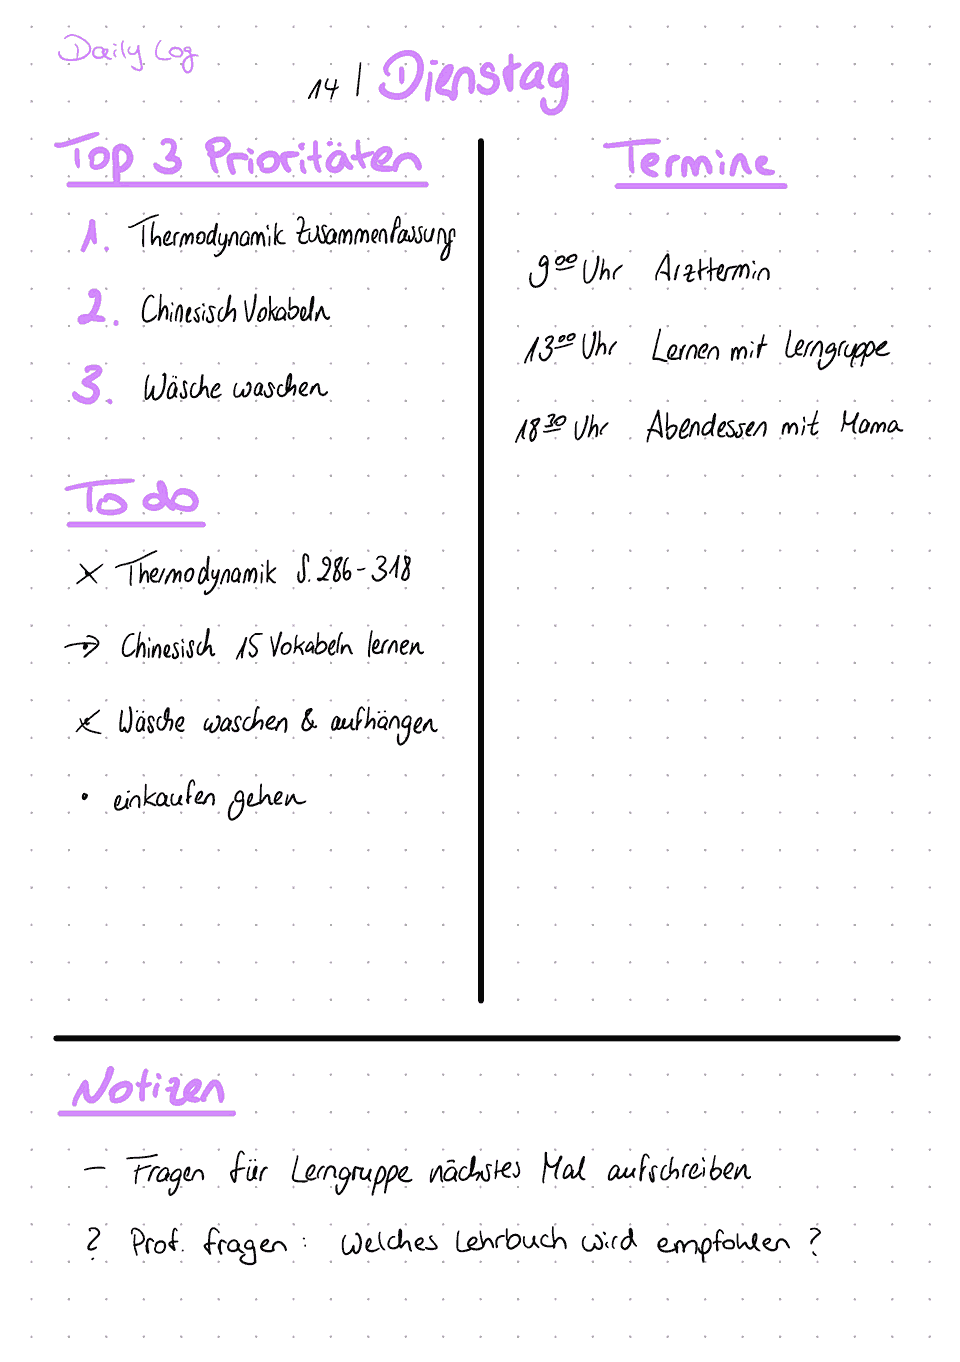 Daily Log
14 | Dienstag
Top 3 Prioritäten
1. Thermodynamik Zusammenfassung
2. Chinesisch Vokabeln
3. Wäsche waschen
To do
× Thermodynamik S. 286-318
→ Chinesisch 15 Vokabeln lernen
× Wäsche waschen & aufhängen
• einkaufen gehen
Termine
9⁰⁰ Uhr Arzttermin
13⁰⁰ Uhr Lernen mit Lerngruppe
18³⁰ Uhr Abendessen mit Mama
Notizen
– Fragen für Lerngruppe nächstes Mal aufschreiben
? Prof. fragen: Welches Lehrbuch wird empfohlen?